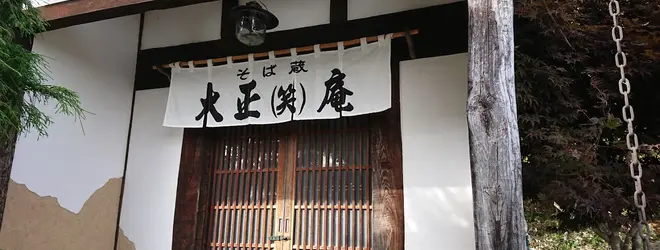 そば蔵
大正(笑)庵